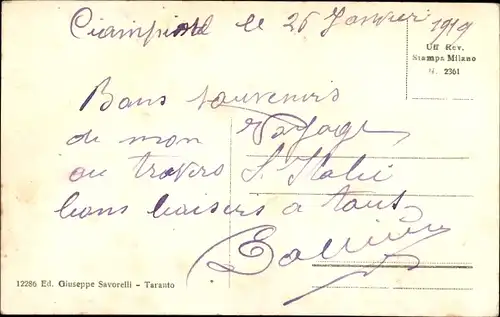 Ciampino le 26 Janvier 1919
Uff Rev.
Stampa Milano
N. 2361
Bons souvenirs
de mon Voyage
au travers l'Italie
bons baisers a tous
12286 Ed. Giuseppe Savorelli - Taranto